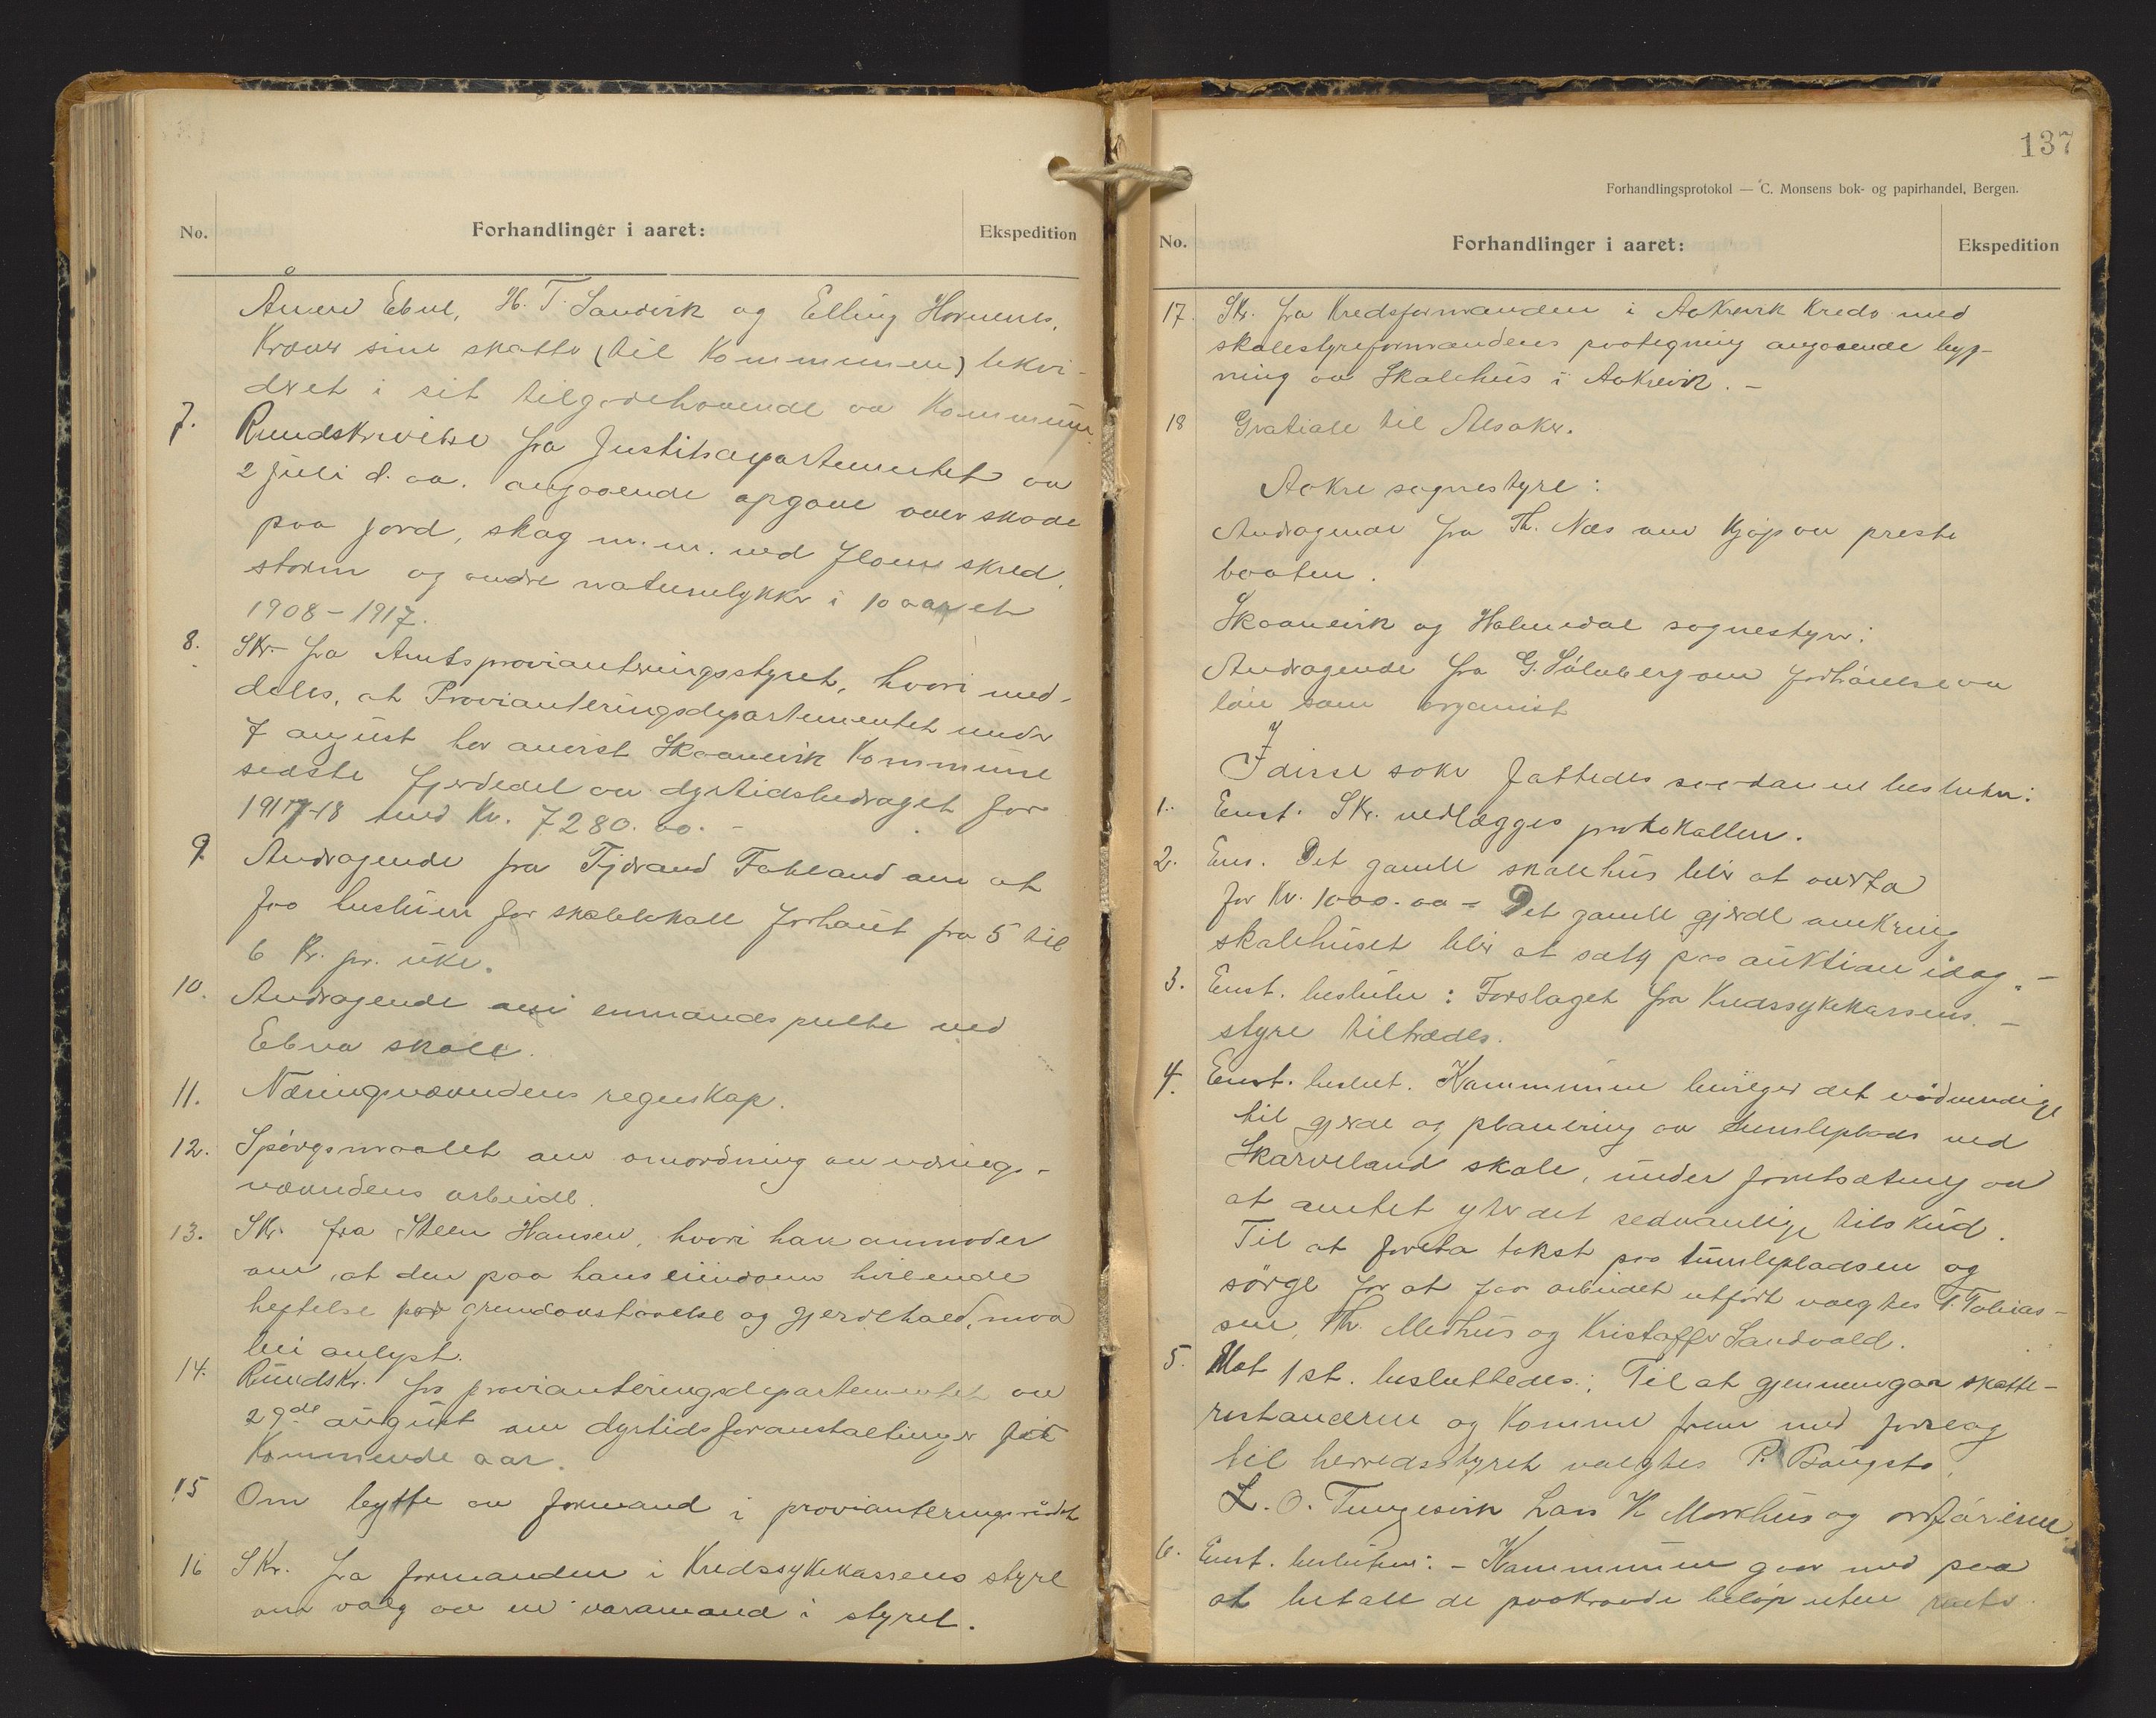 No.
Forhandlinger i aaret:
Ekspedition
Ånen Ebne, H. T. Sandvik og Elling Hornenes,
Kræver sine skatte (til Kommunen) likvi-
dert i sit tilgodehavende av Kommun.
7. Rundskrivelse fra Justitsdepartementet av
2 juli d. aa. angaaende opgave over skade
paa jord, skog m.m. ved flom skred,
storm og andre naturulykker i 10 aaret
1908-1917.
8. Skr. fra Amtsprovianteringsstyret, hvori med-
deles, at Provianteringsdepartementet under
7 august har anvist Skaanevik Kommune
sidste fjerdedel av dyrtidsbidraget for
1917-18 med Kr. 7280.00.-
9. Andragende fra Tjerand Fatland om at
faa husleien for skolelokale forhøiet fra 5 til
6 Kr. pr. uke.
10. Andragende om enmandspulte ved
Ebna skole.
11. Næringsnævndens regnskap.
12. Spørgsmaalet om omordning av nærings-
nævndens arbeide.
13. Skr. fra Steen Hansen, hvori han anmoder
om, at den paa hans eiendom hvilende
heftelse paa grundavstaaelse og gjerdehold, maa
bli avlyst.
14. Rundskr. fra provianteringsdepartementet av
29de august om dyrtidsforanstaltninger
Kommende aar.
15 Om bytte av formand i provianteringsraadet
16 Skr. fra formanden i Kredssykekassens styre
om valg av en varamand i styret.
137
Forhandlingsprotokol — C. Monsens bok- og papirhandel, Bergen.
No.
Forhandlinger i aaret:
Ekspedition
17. Skr. fra Kredsformanden i Aakrevik Kreds med
skolestyreformandens paategning angaaende byg-
ning av Skolehus i Aakrevik.-
18 Gratiale til Alsaker.
Aakre sognestyre:
Andragende fra Th. Næs om Kjøp av preste
baaten.
Skaanevik og Holmedal sognestyre:
Andragende fra G. Sølvberg om forhøielse av
løn som organist
I disse saker fattedes saadanne beslutn:
1. Enst. Skr. vedlægges protokollen.
2. Ens. Det gamle skolehus blir at overta
for Kr. 1000.00 - Det gamle gjerde omkring
skolehuset blir at sælge paa auktion idag.-
3. Enst. beslutn: Forslaget fra Kredssykekassens -
styre tiltrædes.
4. Enst. beslut. Kommunen bevilger det nødvendige
til gjerde og planering av tumleplads ved
Skarveland skole, under forutsætning av
at amtet yter det sedvanlige tilskud.
Til at foreta takst paa tumlepladsen og
sørge for at faa arbeidet utført valgtes T. Tobias-
sen, Th. Medhus og Kristoffer Sandvold.
5. Mot 1 st. besluttedes: Til at gjennemgaa skatte-
restancerne og Komme frem med forslag
til herredsstyret valgtes P. Baugsto,
L. O. Tungesvik Lars K Markhus og ordføreren.
6. Enst. beslutn: - Kommunen gaar med paa
at betale de paakrævde beløp uten renter.